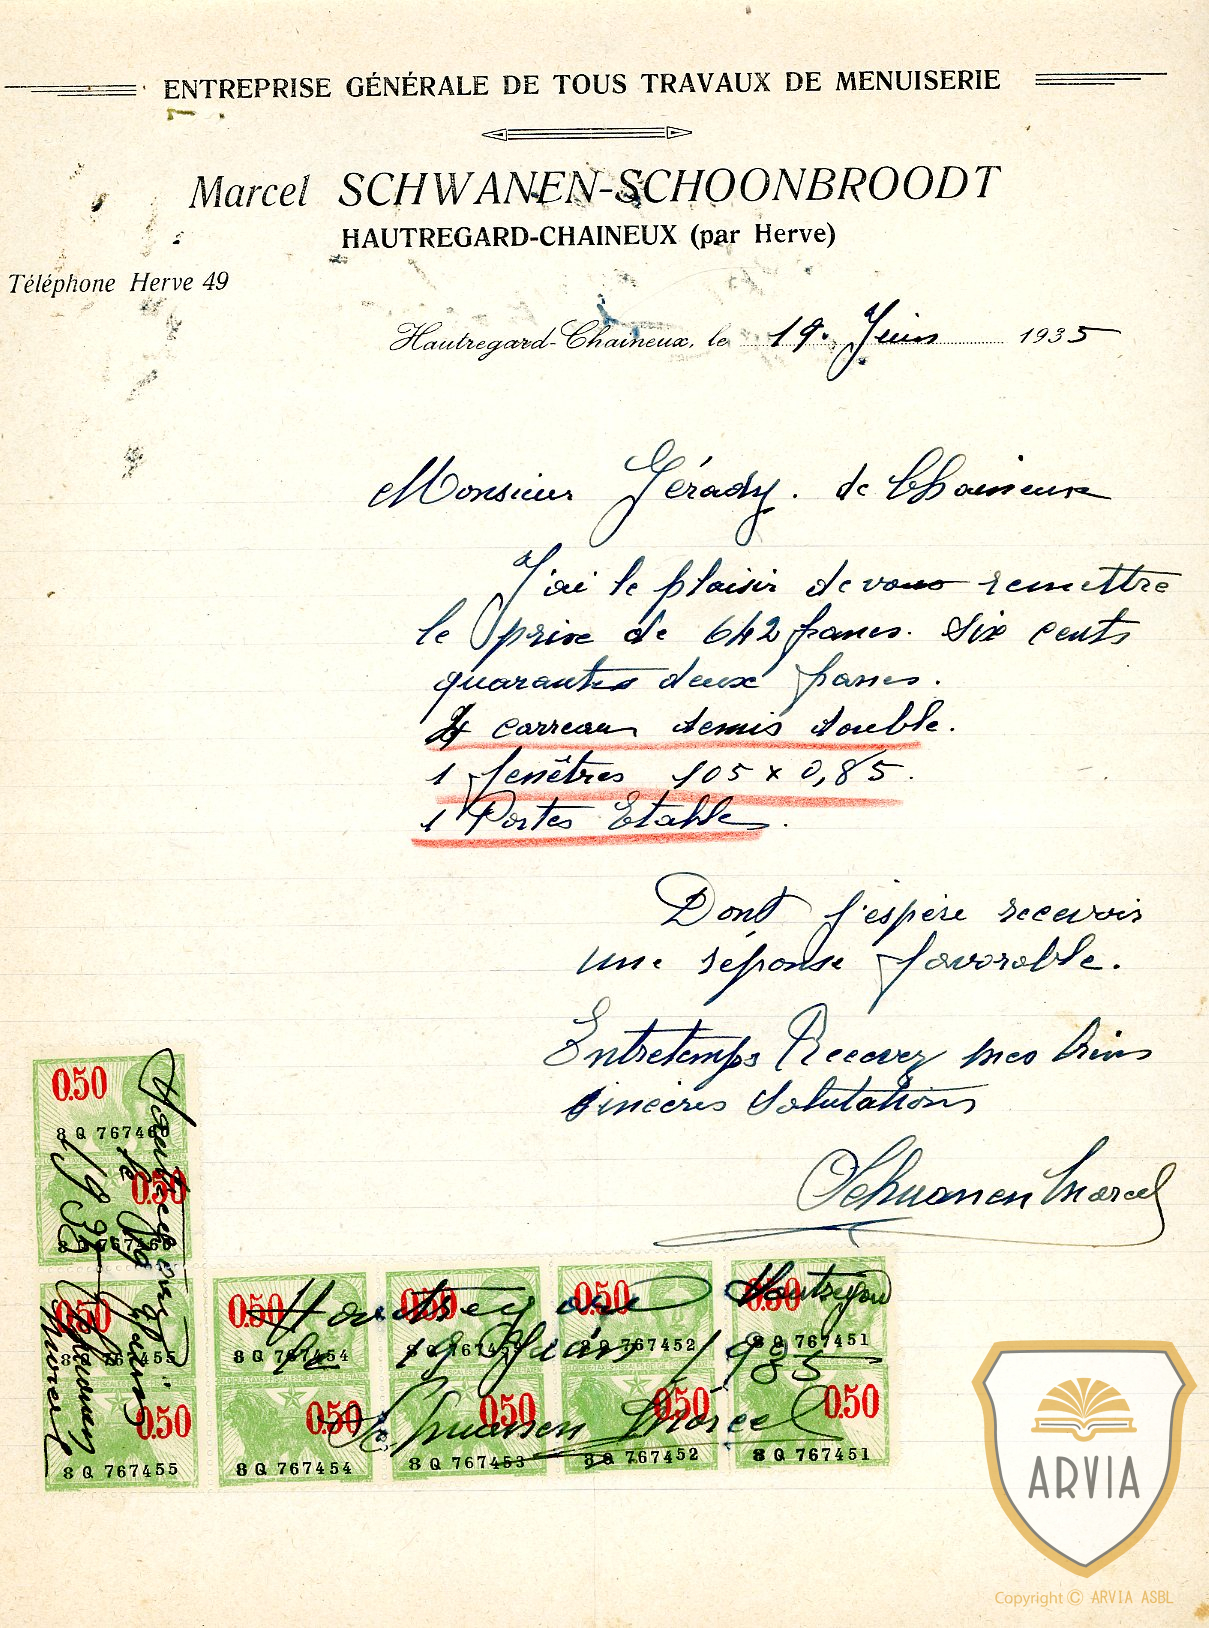 ENTREPRISE GÉNÉRALE DE TOUS TRAVAUX DE MENUISERIE
Marcel SCHWANEN-SCHOONBROODT
HAUTREGARD-CHAINEUX (par Herve)
Téléphone Herve 49
Hautregard-Chaineux, le 19. Juin 1935
Monsieur Gérady. de Chaineux
J'ai le plaisir de vous remettre
le prix de 642 francs. Six cents
quarantes deux francs.
4 carreau demis double.
1 fenêtres 105 x 0,85.
1 Portes Etables.
Dont j'espère recevoir
une réponse favorable.
Entretemps Recevez mes biens
sincères salutations
Schwanen Marcel
0.50
8 Q 767460
0.50
0.50
8 Q 767455
0.50
8 Q 767455
0.50
8 Q 767454
0.50
8 Q 767454
0.50
0.50
8 Q 767453
0.50
8 Q 767452
0.50
8 Q 767452
0.50
8 Q 767451
0.50
8 Q 767451
le 19 Juin 1935
Schwanen Marcel
le 19 Juin
1935
Schwanen
Marcel
ARVIA
Copyright © ARVIA ASBL